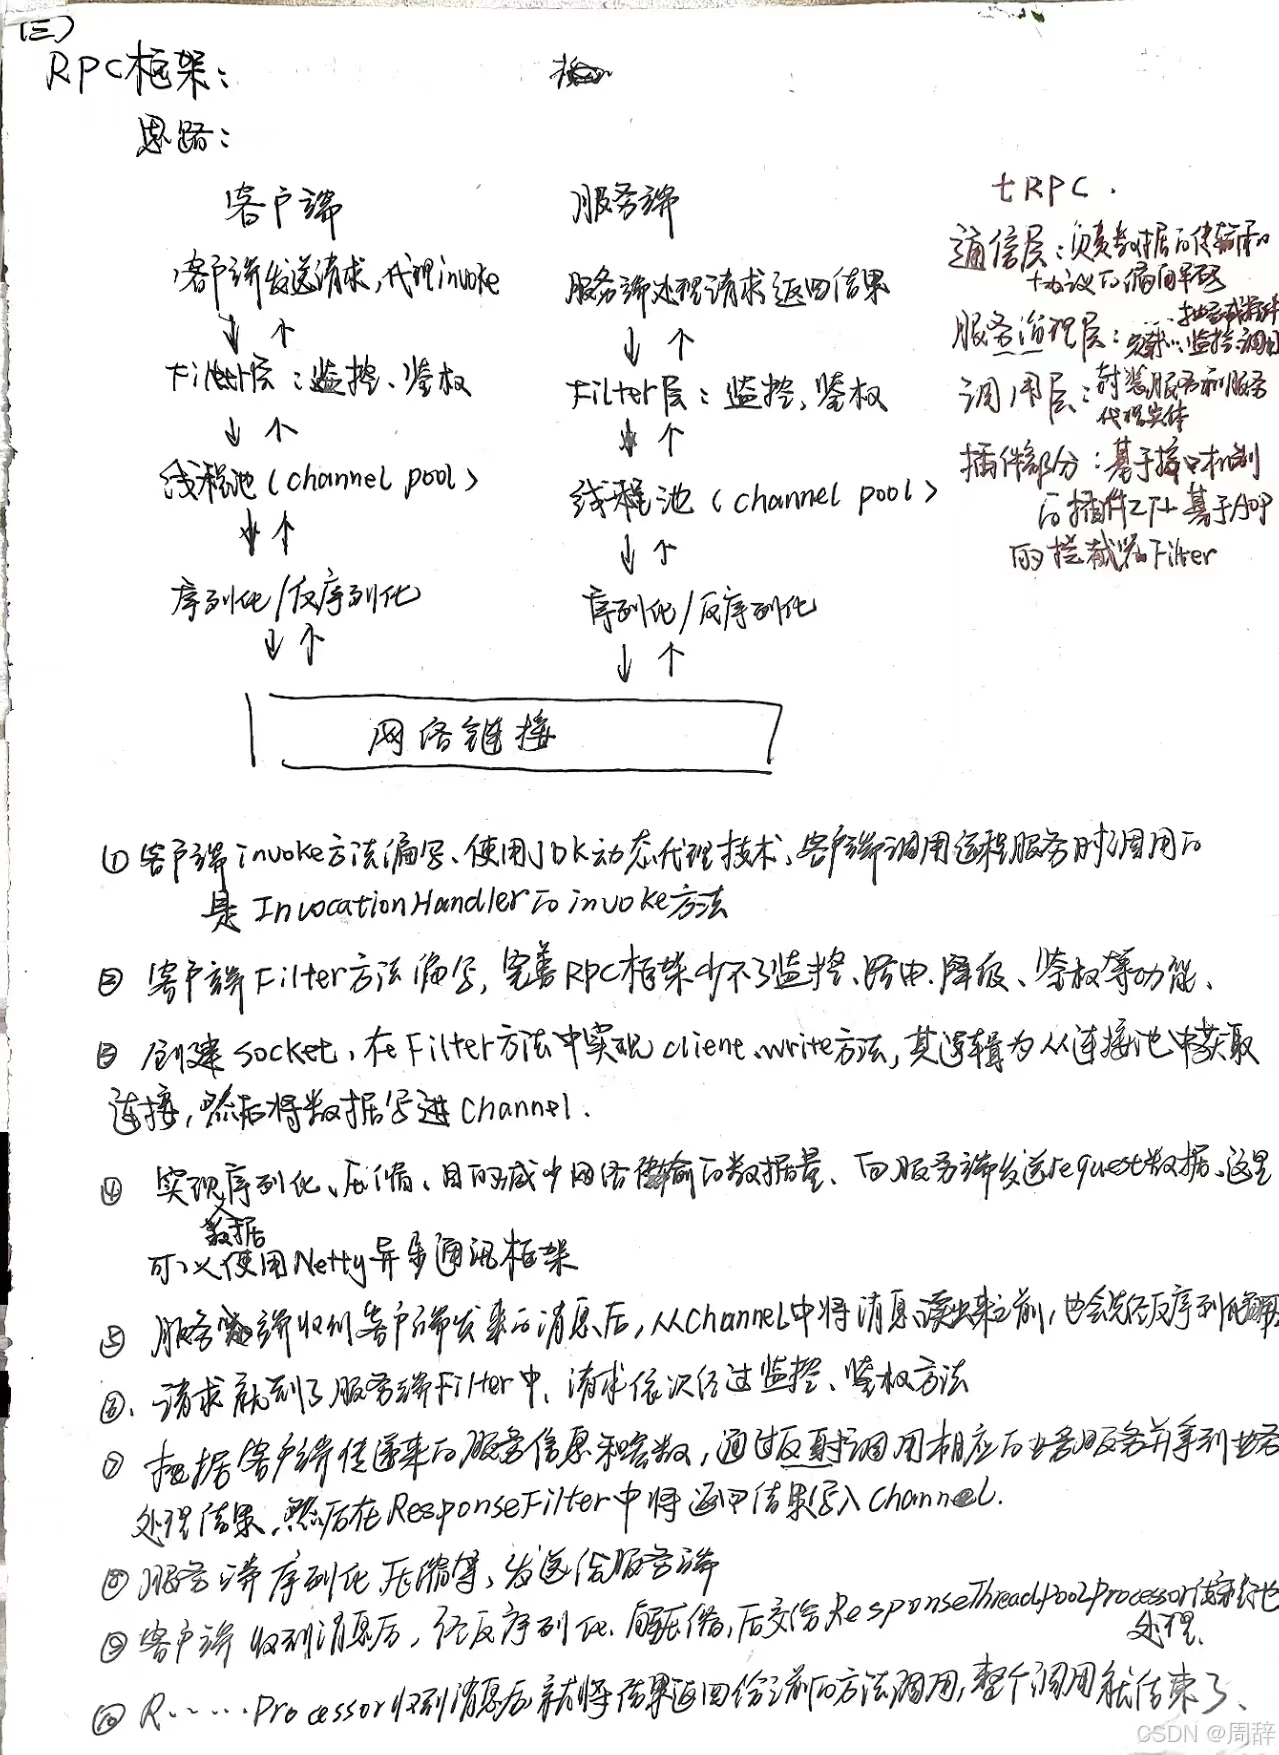 (三)
RPC框架:
思路:
客户端 服务端
客户端发送请求,代理invoke 服务端处理请求返回结果
↓ ↑ ↓ ↑
Filter层:监控、鉴权 Filter层:监控、鉴权
↓ ↑ ↓ ↑
线程池(channel pool) 线程池(channel pool)
↓ ↑ ↓ ↑
序列化/反序列化 序列化/反序列化
↓ ↑ ↓ ↑
网络链接
tRPC.
通信层:负责数据的传输和
协议的编解码
服务治理层:监控、调用
调用层:封装服务和服务
代理实体
插件部分:基于接口机制
的插件工厂+基于AOP
的拦截器Filter
① 客户端invoke方法编写、使用JDK动态代理技术、客户端调用远程服务时调用的
是InvocationHandler的invoke方法
② 客户端Filter方法编写,完善RPC框架少不了监控、路由、降级、鉴权等功能、
③ 创建socket,在Filter方法中实现client.write方法,其逻辑为从连接池中获取
连接,然后将数据写进channel.
④ 实现数据序列化、压缩、目的减少网络传输的数据量、向服务端发送request数据、这里
可以使用Netty异步通讯框架
⑤ 服务端收到客户端发来的消息后,从Channel中将消息读出来之前,也会先经反序列化解压
⑥、请求就到了服务端Filter中、请求依次经过监控、鉴权方法
⑦ 根据客户端传递来的服务信息和参数,通过反射调用相应的业务服务并拿到业务
处理结果、然后在ResponseFilter中将返回结果写入Channel.
⑧ 服务端序列化、压缩等、发送给服务端
⑨ 客户端收到消息后,经反序列化、解压缩,后交给ResponseThreadpoolProcessor线程池
处理、
⑩ R......Processor收到消息后就将结果返回给之前的方法调用,整个调用就结束了、
CSDN @周辞